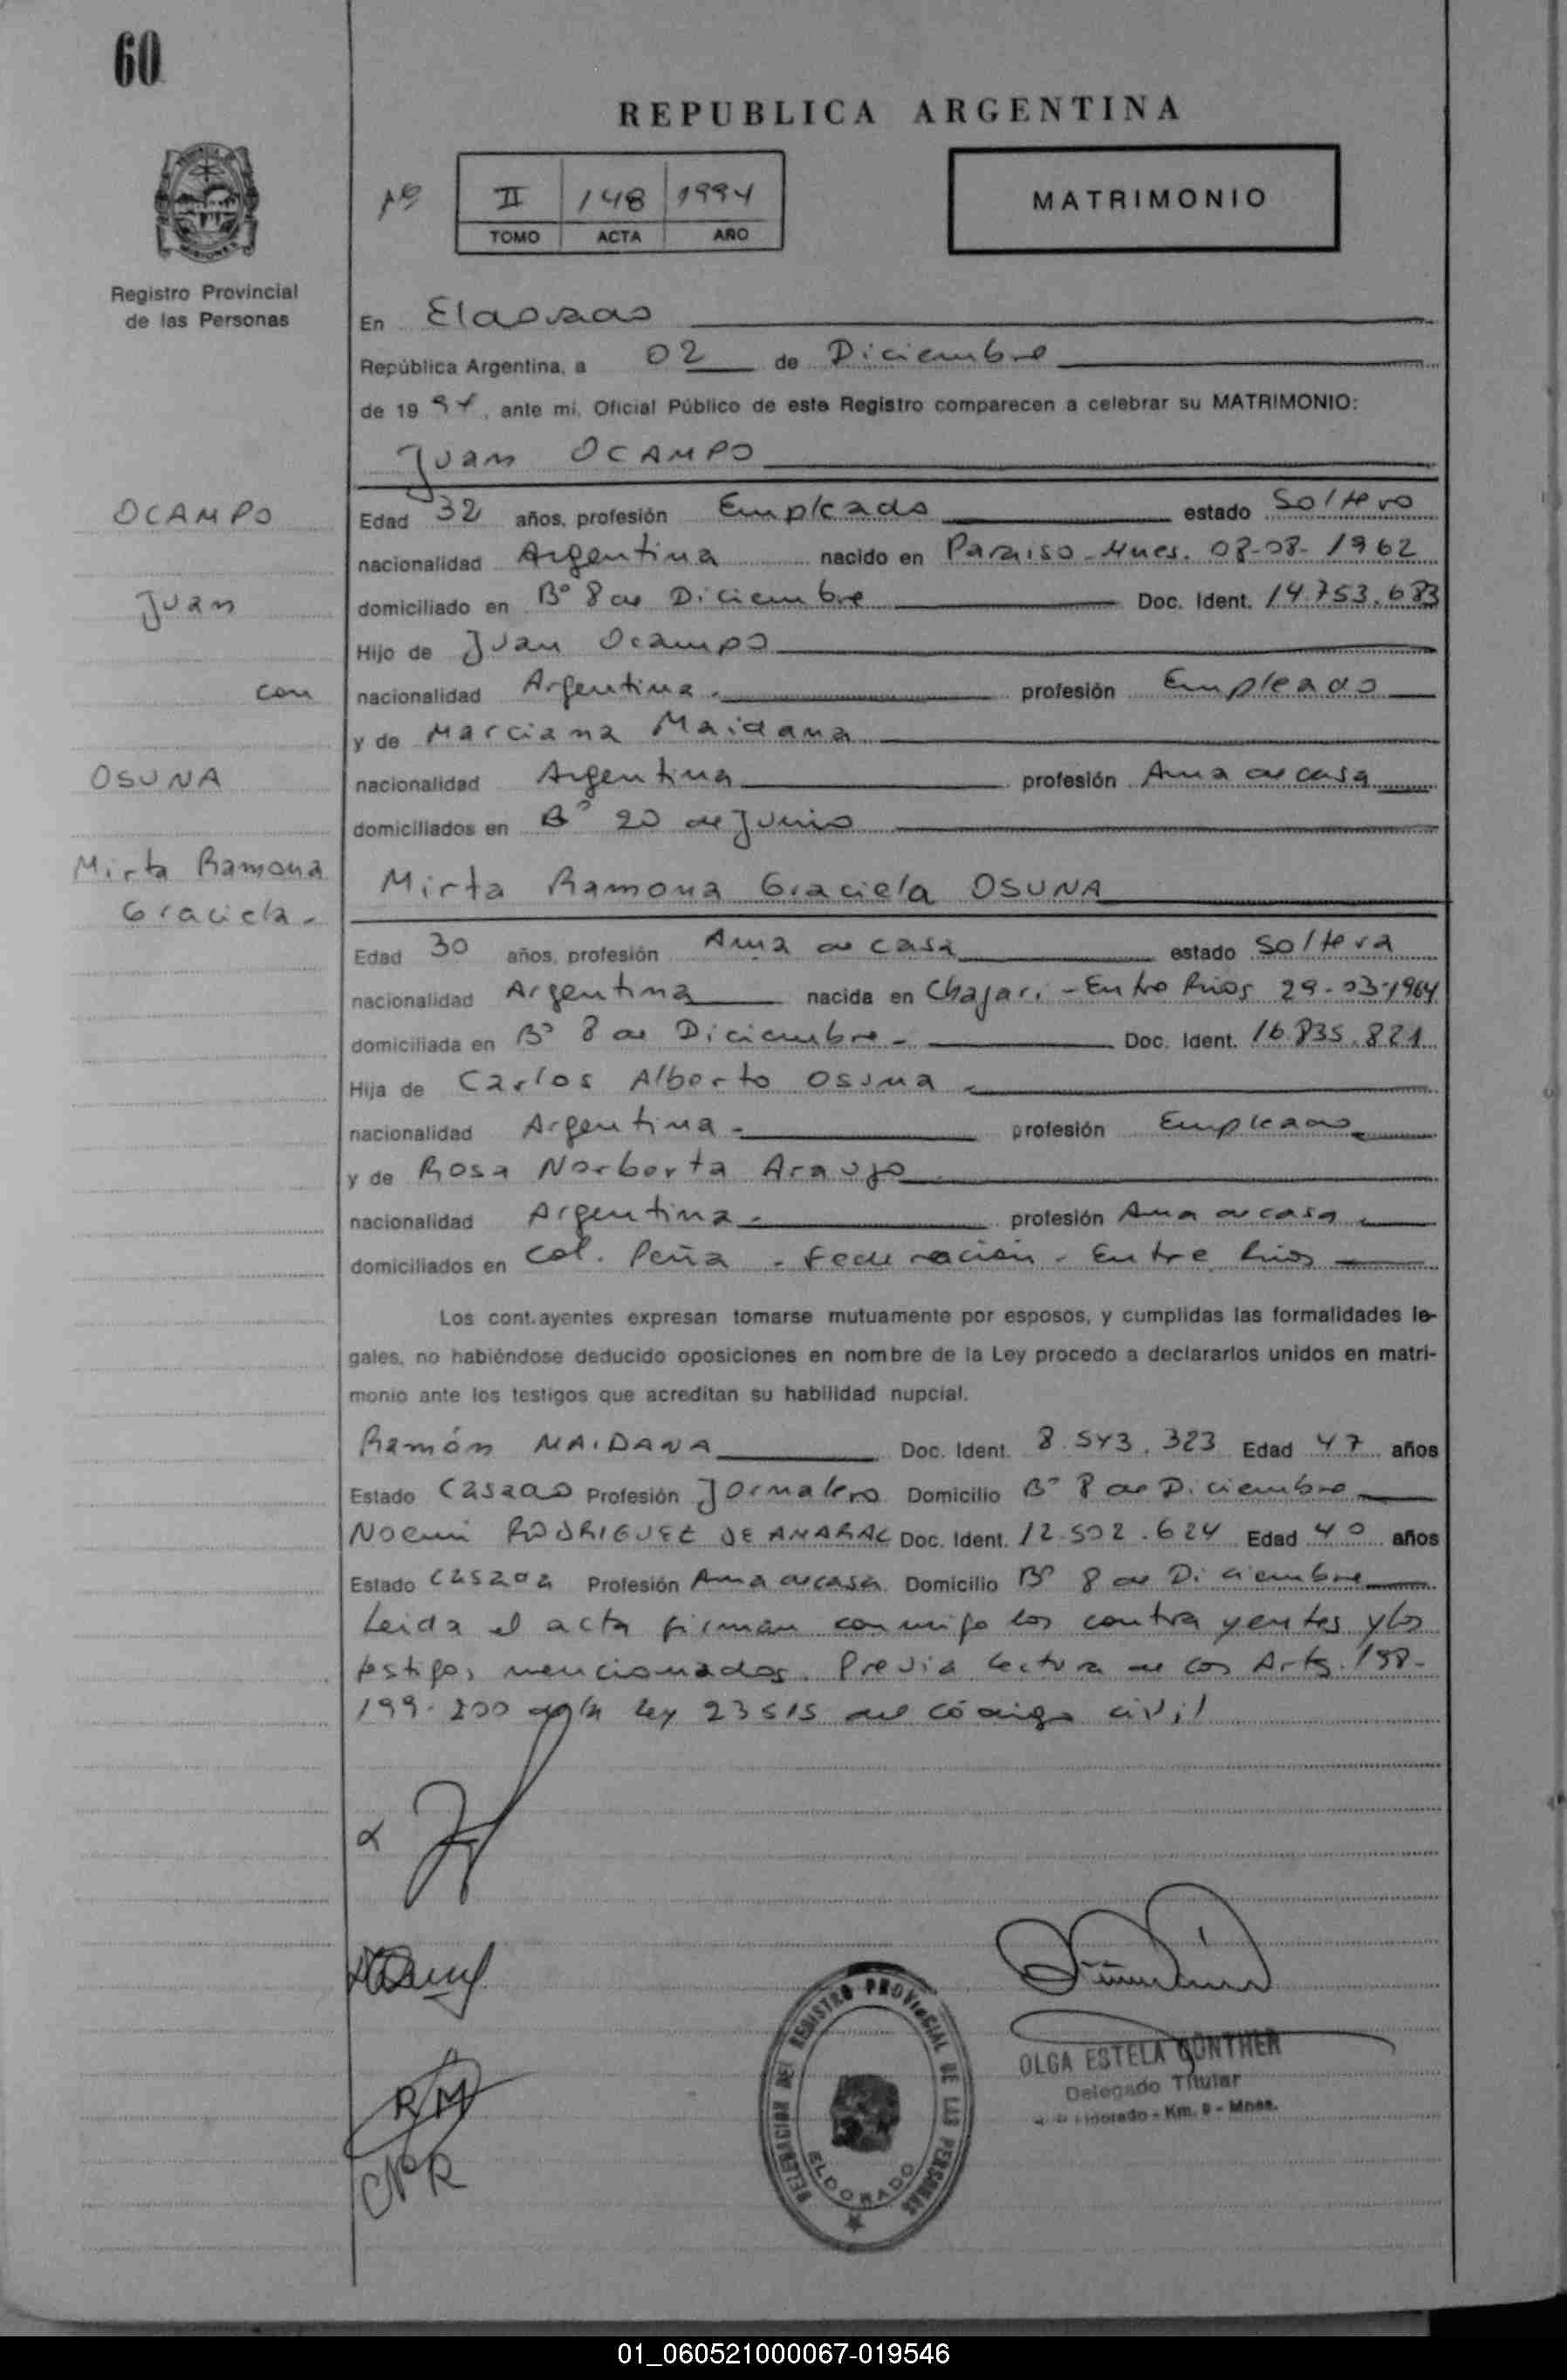 60
REPUBLICA ARGENTINA
Nº II 148 1994
TOMO ACTA AÑO
MATRIMONIO
Registro Provincial
de las Personas
En Eldorado
República Argentina, a 02 de Diciembre
de 1994, ante mi, Oficial Público de este Registro comparecen a celebrar su MATRIMONIO:
Juan OCAMPO
OCAMPO
Juan
con
OSUNA
Mirta Ramona
Graciela.-
Edad 32 años, profesión Empleado estado Soltero
nacionalidad Argentina nacido en Paraiso-Mnes. 08-08-1962
domiciliado en Bº 8 de Diciembre Doc. Ident. 14.753.683
Hijo de Juan Ocampo
nacionalidad Argentina.- profesión Empleado
y de Marciana Maidana
nacionalidad Argentina profesión Ama de casa
domiciliados en Bº 20 de Junio
Mirta Ramona Graciela OSUNA
Edad 30 años, profesión Ama de casa estado Soltera
nacionalidad Argentina nacida en Chajari-Entre Rios 29-03-1964
domiciliada en Bº 8 de Diciembre.- Doc. Ident. 16.835.821
Hija de Carlos Alberto Osuna
nacionalidad Argentina.- profesión Empleado
y de Rosa Norberta Araujo
nacionalidad Argentina.- profesión Ama de casa
domiciliados en Col. Peña - Federación - Entre Rios
Los contrayentes expresan tomarse mutuamente por esposos, y cumplidas las formalidades le-
gales, no habiéndose deducido oposiciones en nombre de la Ley procedo a declararlos unidos en matri-
monio ante los testigos que acreditan su habilidad nupcial.
Ramón MAIDANA Doc. Ident. 8.543.323 Edad 47 años
Estado Casado Profesión Jornalero Domicilio Bº 8 de Diciembre
Noemi RODRIGUEZ DE AMARAL Doc. Ident. 12.502.624 Edad 40 años
Estado Casada Profesión Ama de casa Domicilio Bº 8 de Diciembre
Leida el acta firman conmigo los contrayentes y los
testigos mencionados. Previa lectura de los Arts. 198-
199-200 de la Ley 23515 del código civil
RM
CNR
DELEGACION DEL REGISTRO PROVINCIAL DE LAS PERSONAS
ELDORADO
OLGA ESTELA GUNTHER
Delegado Titular
Eldorado - Km. 9 - Mnes.
01_060521000067-019546